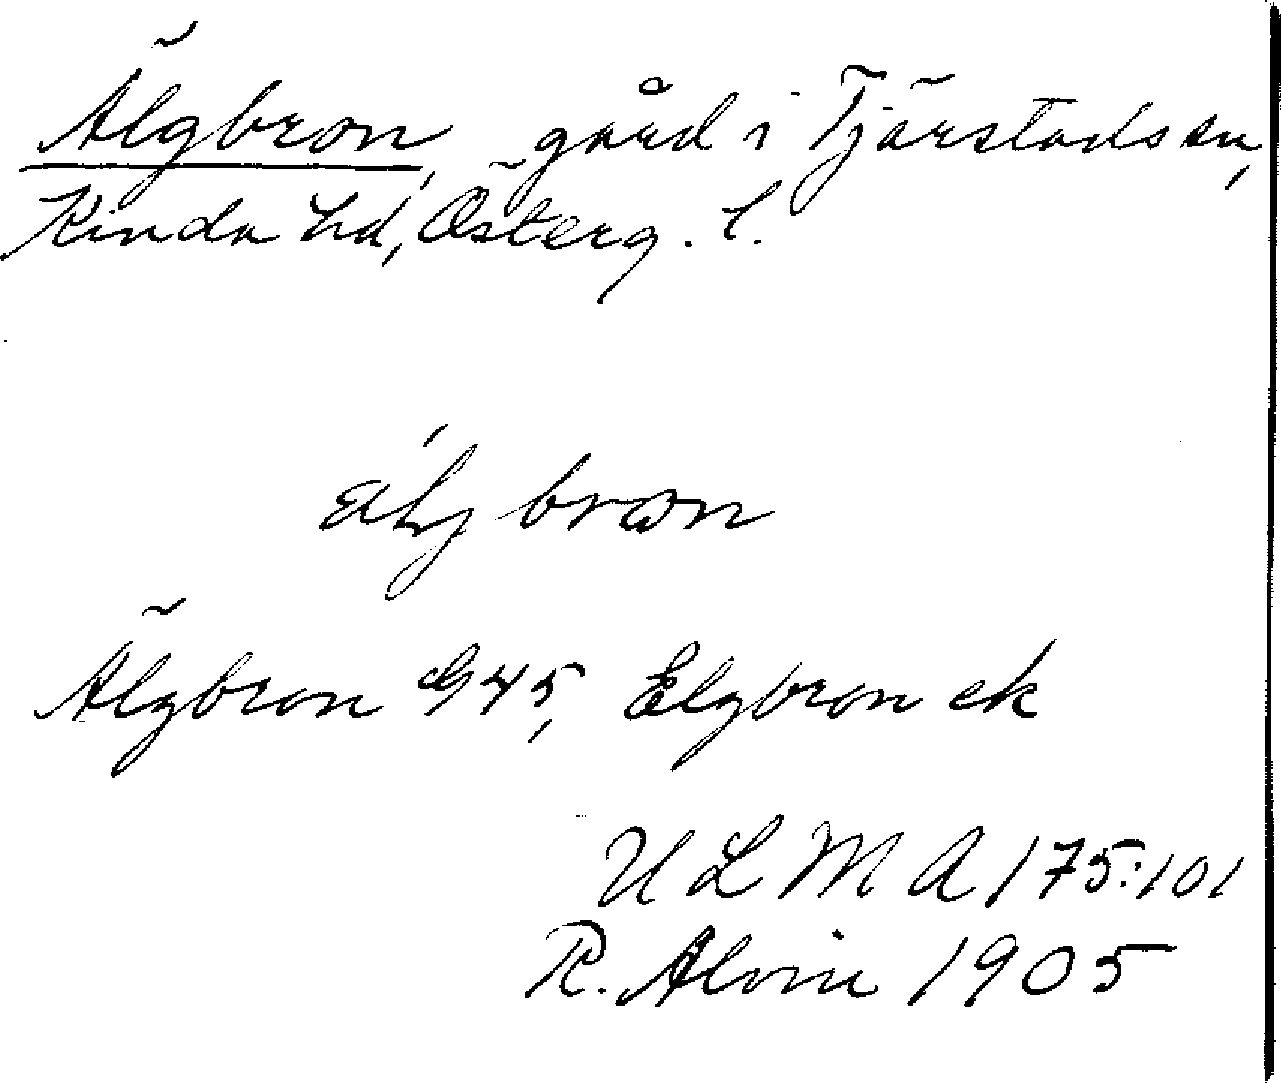 Älgbron, gård i Tjärstads sn,
Kinda hd, Österg. l.
Älgbron G45, Elgbron ek
ULMA 175:101
R. Alvin 1905